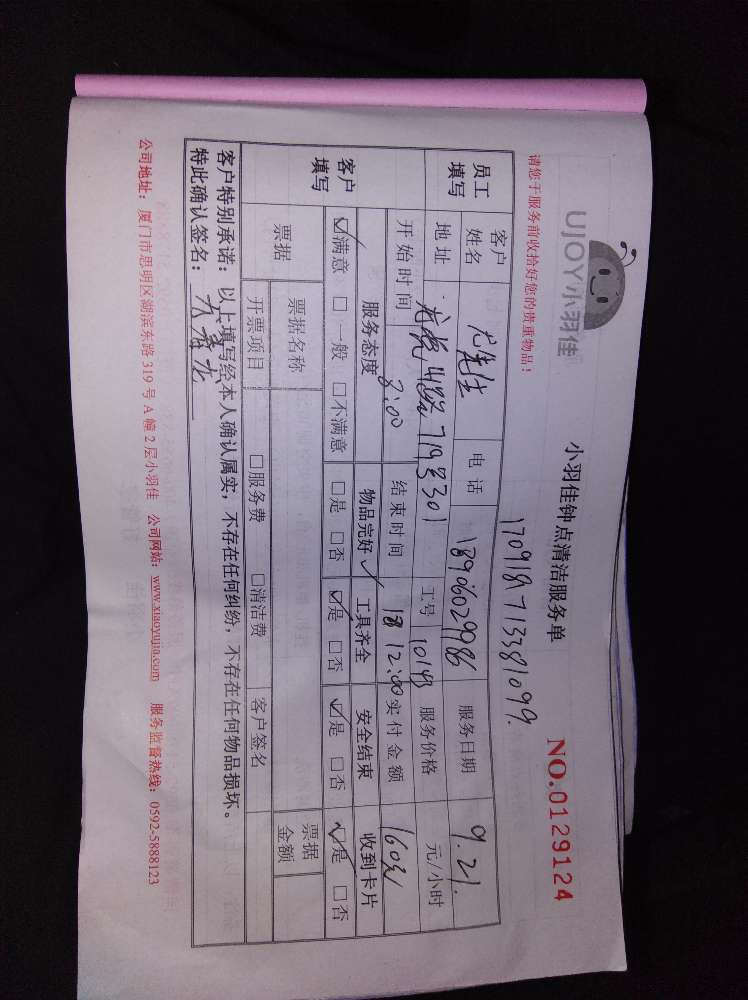 UJOY小羽佳
小羽佳钟点清洁服务单
NO.0129124
请您于服务前收拾好您的贵重物品！
170918713381099.
员工填写 客户姓名 尤先生 电话 18906029986 服务日期 9.21.
地址 719号301 工号 10143 服务价格 元/小时
开始时间 8:00 结束时间 12:00 实付金额 160元
客户填写 服务态度 物品完好✓ 工具齐全 安全结束 收到卡片
☑满意 □一般 □不满意 □是 □否 ☑是 □否 ☑是 □否 ☑是 □否
票据 票据名称 票据金额
开票项目 □服务费 □清洁费 客户签名
客户特别承诺：以上填写经本人确认属实，不存在任何纠纷，不存在任何物品损坏。
特此确认签名：
公司地址：厦门市思明区湖滨东路319号A幢2层小羽佳 公司网站：www.xiaoyujia.com 服务监督热线：0592-5888123